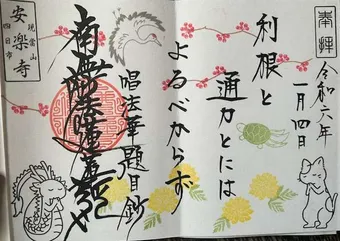 奉拝
令和六年
一月四日
利根と
通力とには
よるべからず
唱法華題目鈔
南無妙法蓮華経
現常山
安楽寺
四日市